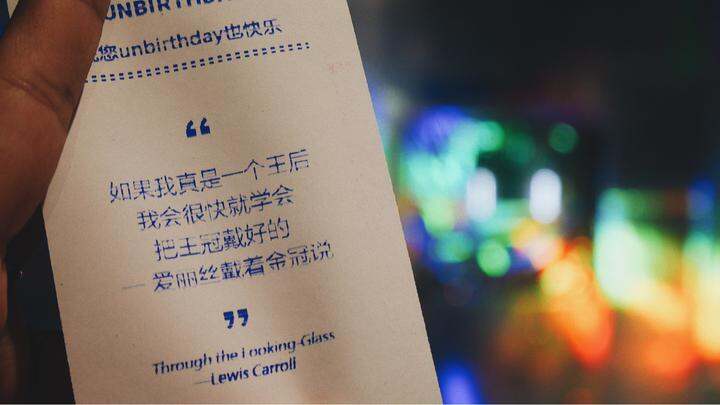 UNBIRTHDA
祝您unbirthday也快乐
“
如果我真是一个王后
我会很快就学会
把王冠戴好的
— 爱丽丝戴着金冠说
”
Through the Looking-Glass
—Lewis Carroll